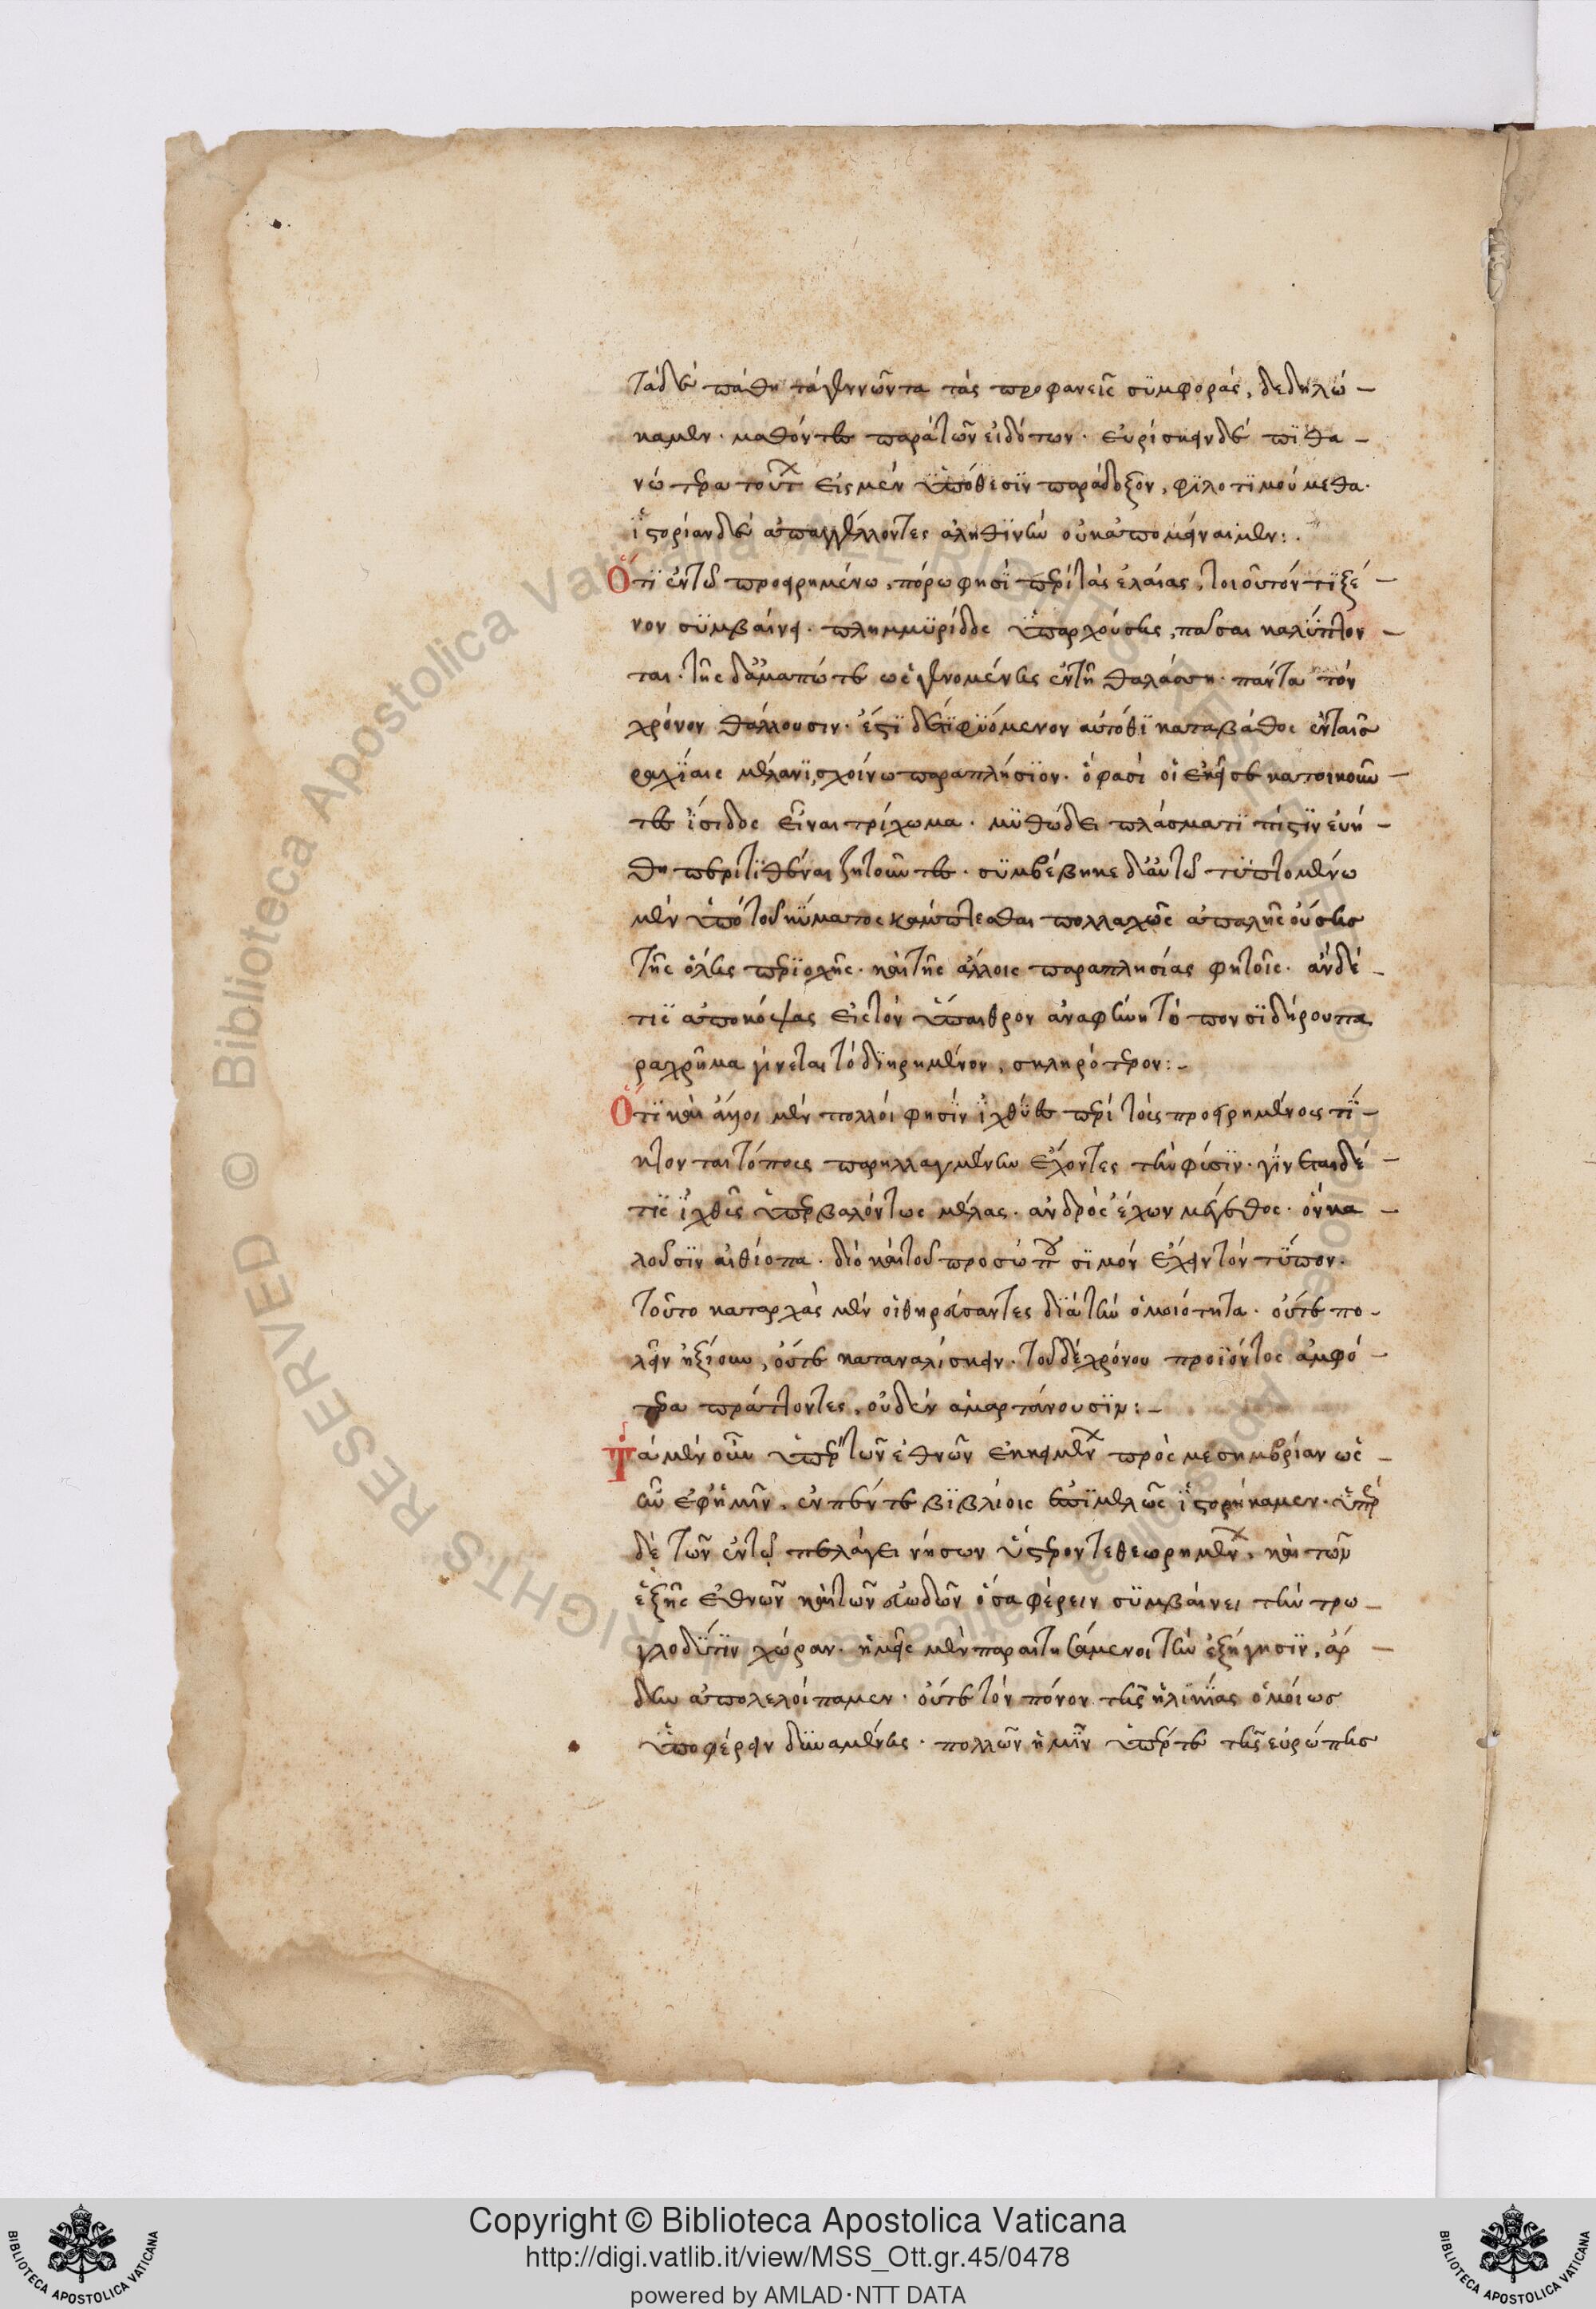 τὰ δὲ πάθη τὰ γεννῶντα τὰς προφανεῖς συμφοράς, δεδηλώ-
καμεν· μαθόντες παρὰ τῶν εἰδότων· εὑρίσκειν δὲ πιθα-
νώτερα τούτων εἰς μὲν ὑπόθεσιν παράδοξον, φιλοτιμούμεθα·
ἱστορίαν δὲ ἀπαγγέλλοντες ἀληθινὴν οὐκ ἀπομείναιμεν:
Ὅτι ἐν τῷ προειρημένω πόρω φησὶ περὶ τὰς ἐλαίας, τοιοῦτόν τι ξέ-
νον συμβαίνει· πλημμυρίδος ὑπαρχούσης, πᾶσαι καλύπτον-
ται· τῆς δ' ἀμπώτεως γενομένης ἐν τῇ θαλάσση· πάντα τὸν
χρόνον θάλλουσιν· ἔστι δέ τι φυόμενον αὐτόθι κατα βάθος ἐν ταῖς
ῥαχίαις μέλανι σχοίνω παραπλήσιον· ὅ φασὶ οἱ ἐκεῖσε κατοικοῦν-
τες ἴσιδος εἶναι τρίχωμα· μυθώδει πλάσματι πίστιν εὐή-
θη περιτιθέναι ζητοῦντες· συμβέβηκε δ' αὐτῷ τυπτομένω
μὲν ὑπὸ τοῦ κύματος κάμπτεσθαι πολλαχῶς ἁπαλῆς οὔσης
τῆς ὅλης περιοχῆς· καὶ τῆς ἄλλοις παραπλησίας φυτοῖς· ἂν δέ
τις ἀποκόψας εἰς τὸν ὕπαιθρον ἀναφήνη τόπον σιδήρου πα
ραχρῆμα γίνεται τὸ διηρημένον, σκληρότερον:-
Ὅτι καὶ ἄλλοι μὲν πολλοί φησιν ἰχθύες περὶ τοῖς προειρημένοις τί-
κτονται τόποις παρηλλαγμένην ἔχοντες τὴν φύσιν· γίνεται δέ
τις ἰχθῦς ὑπερβαλόντως μέλας· ἀνδρὸς ἔχων μέγεθος· ὃν κα-
λοῦσιν αἰθίοπα· διὸ καὶ τοῦ προσώπου σιμὸν ἔχειν τὸν τύπον·
τοῦτο καταρχὰς μὲν οἱ θηράσαντες διὰ τὴν ὁμοιότητα· οὔτε πω-
λεῖν ἠξίουν, οὔτε καταναλίσκειν· τοῦ δὲ χρόνου προϊόντος ἀμφό-
τερα πράττοντες, οὐδὲν ἁμαρτάνουσιν:-
Τὰ μὲν οὖν ὑπὲρ τῶν ἐθνῶν ἐκκειμένων πρὸς μεσημβρίαν ὡς
ἦν ἐφ' ἡμῖν, ἐν πέντε βιβλίοις ἐπιμελῶς ἱστορήκαμεν· ὑπὲρ
δὲ τῶν ἐν τῷ πελάγει νήσων ὕστερον τεθεωρημένων, καὶ τῶν
ἑξῆς ἐθνῶν καὶ τῶν εὐωδῶν ὅσα φέρειν συμβαίνει τὴν τρω-
γλοδύτιν χώραν· ἡμεῖς μὲν παραιτησάμενοι τὴν ἐξήγησιν, ἄρ-
δην ἀπολελοίπαμεν· οὔτε τὸν πόνον τῆς ἡλικίας ὁμοίως
ὑποφέρειν δυναμένης· πολλῶν ἡμῖν ὑπέρ τε τῆς εὐρώπης
Copyright © Biblioteca Apostolica Vaticana
http://digi.vatlib.it/view/MSS_Ott.gr.45/0478
powered by AMLAD·NTT DATA